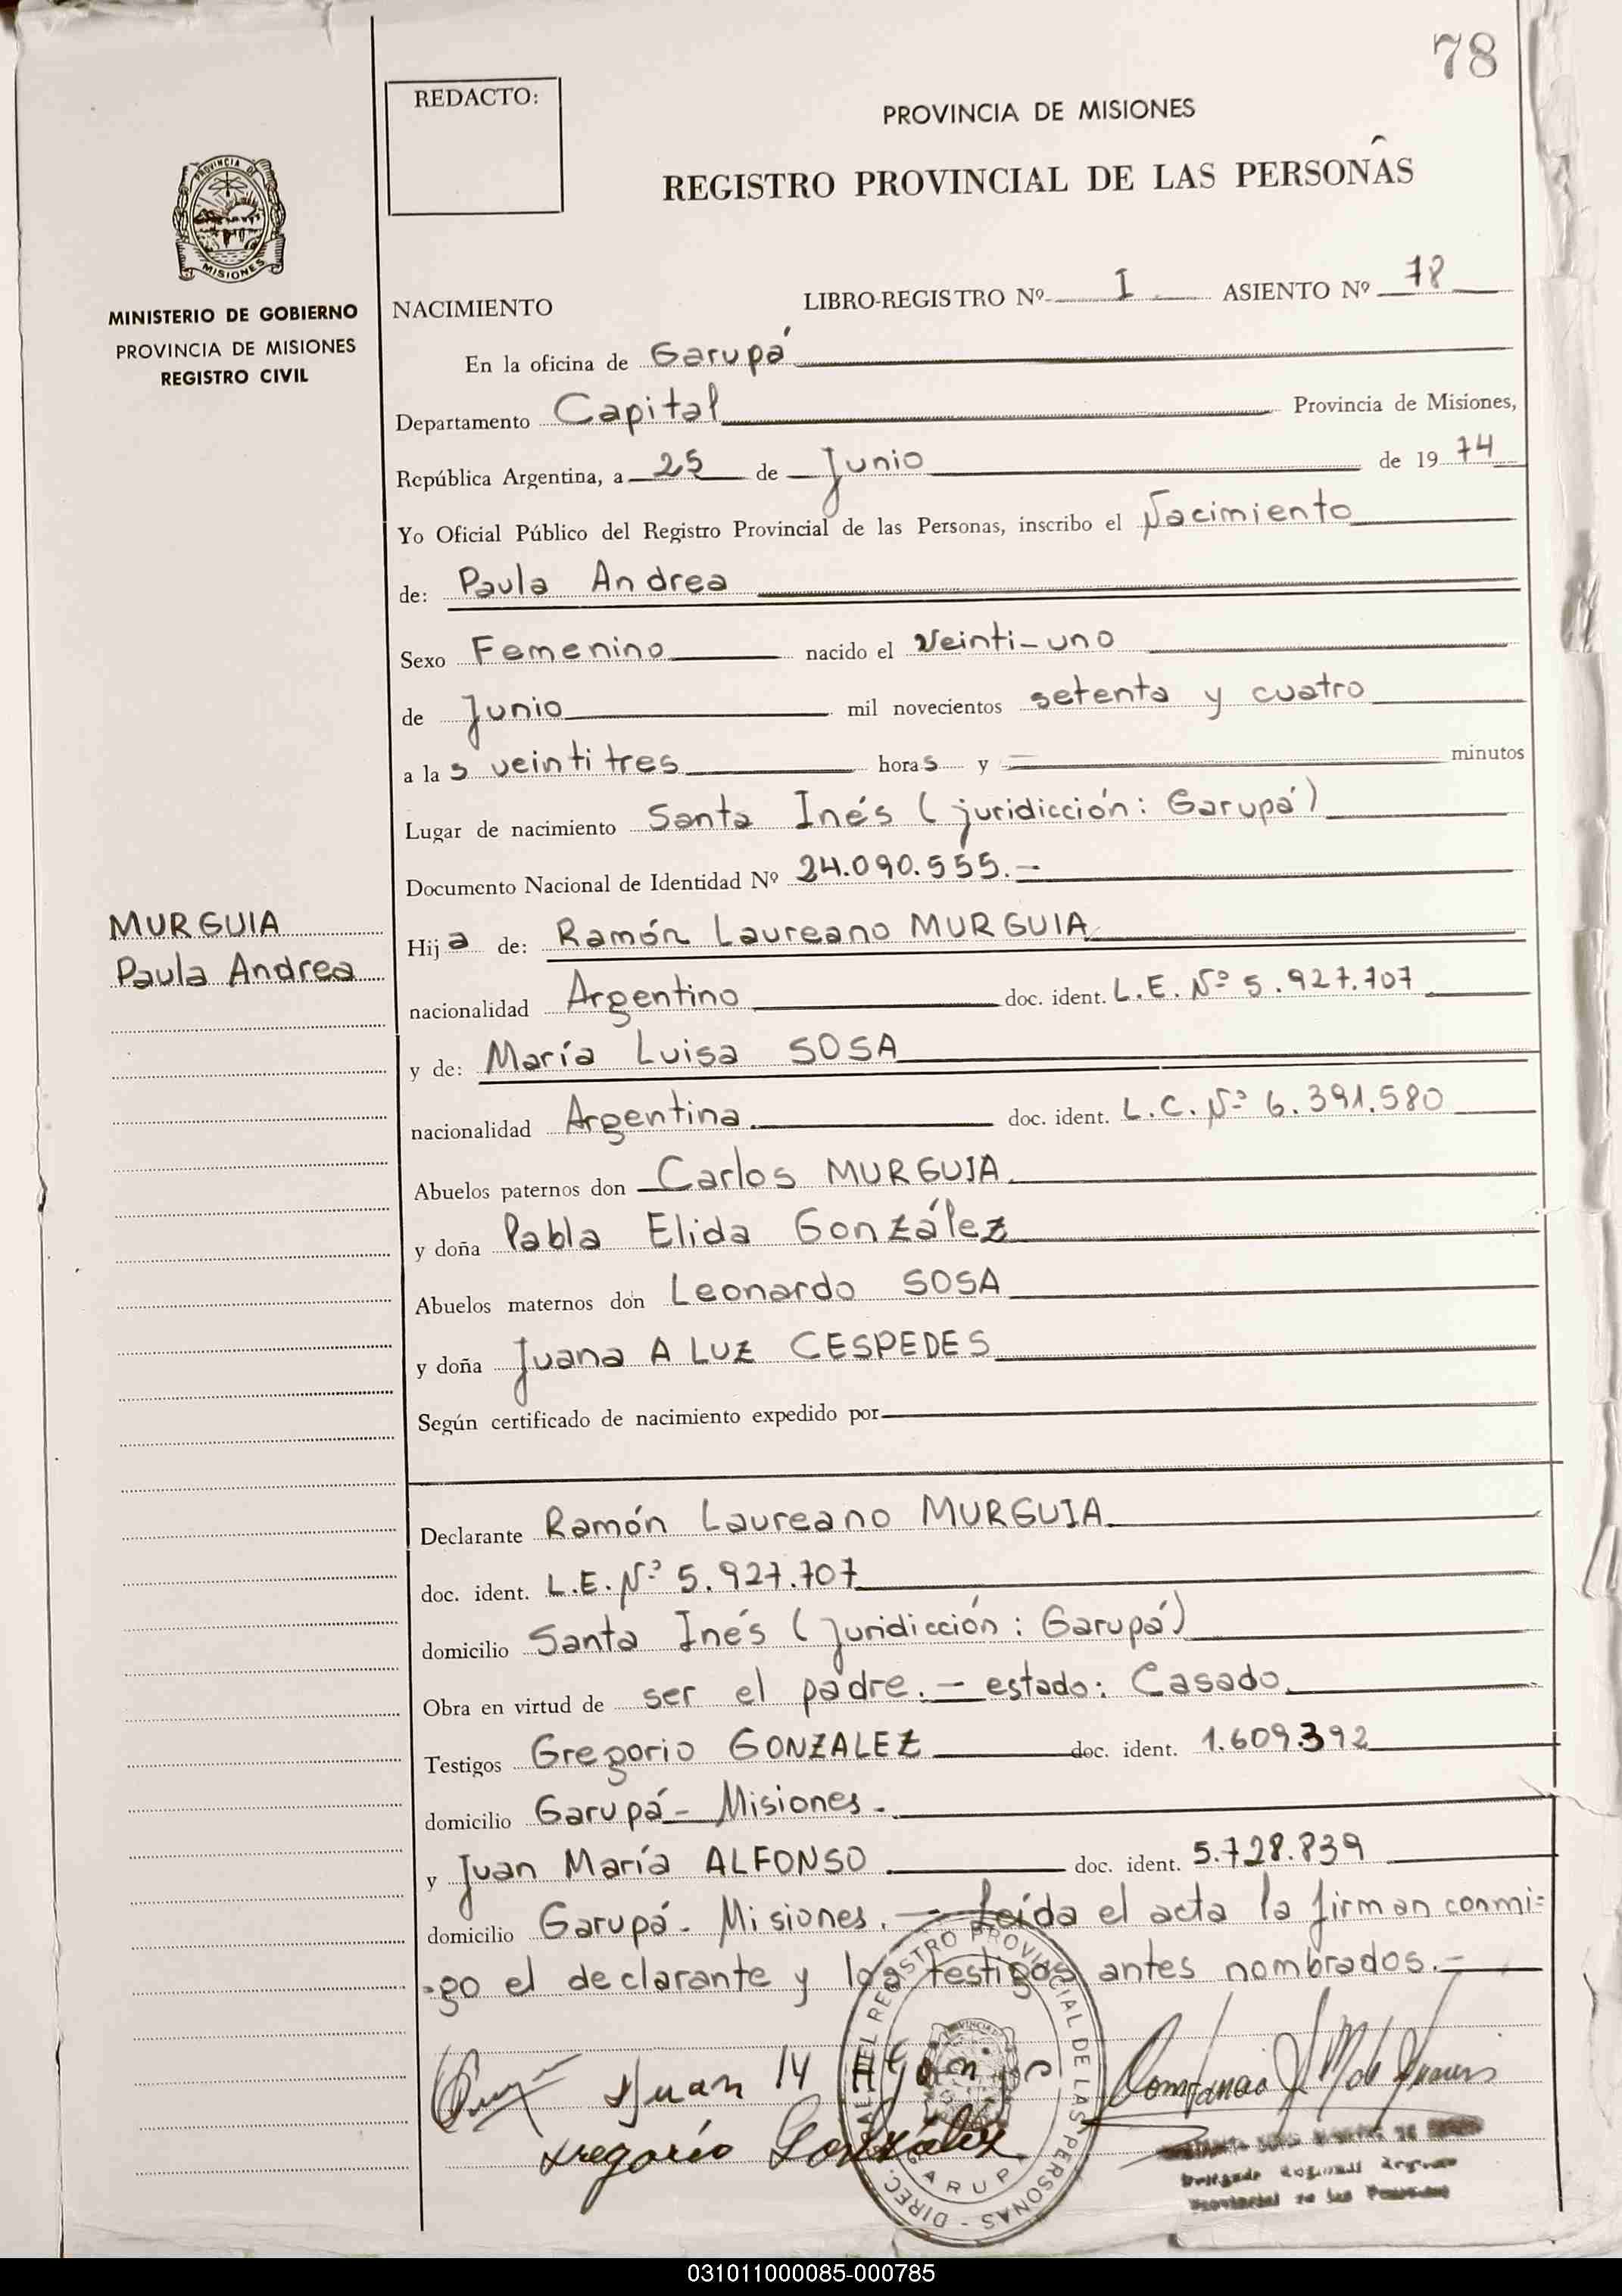 78
REDACTO:
PROVINCIA DE MISIONES
REGISTRO PROVINCIAL DE LAS PERSONAS
PROVINCIA DE
MISIONES
MINISTERIO DE GOBIERNO
PROVINCIA DE MISIONES
REGISTRO CIVIL
NACIMIENTO LIBRO-REGISTRO Nº I ASIENTO Nº 78
En la oficina de Garupá
Departamento Capital Provincia de Misiones,
República Argentina, a 25 de Junio de 1974
Yo Oficial Público del Registro Provincial de las Personas, inscribo el Nacimiento
de: Paula Andrea
Sexo Femenino nacido el Veinti-uno
de Junio mil novecientos setenta y cuatro
a las veintitres horas y = minutos
Lugar de nacimiento Santa Inés (juridicción: Garupá)
Documento Nacional de Identidad Nº 24.090.555.-
MURGUIA
Paula Andrea
Hija de: Ramón Laureano MURGUIA
nacionalidad Argentino doc. ident. L.E. Nº 5.927.707
y de: María Luisa SOSA
nacionalidad Argentina doc. ident. L.C. Nº 6.391.580
Abuelos paternos don Carlos MURGUIA
y doña Pabla Elida González
Abuelos maternos don Leonardo SOSA
y doña Juana A LUZ CESPEDES
Según certificado de nacimiento expedido por
Declarante Ramón Laureano MURGUIA
doc. ident. L.E. Nº 5.927.707
domicilio Santa Inés (juridicción: Garupá)
Obra en virtud de ser el padre.- estado: Casado
Testigos Gregorio GONZALEZ doc. ident. 1.609.392
domicilio Garupá- Misiones.
y Juan María ALFONSO doc. ident. 5.728.839
domicilio Garupá- Misiones.- Leída el acta la firman conmi=
=go el declarante y los testigos antes nombrados.-
DIREC. GRAL. DEL REGISTRO PROVINCIAL DE LAS PERSONAS -
GARUPA
Juan M Alfonso
Gregorio González
Delegada Regional Registro
Provincial de las Personas
031011000085-000785